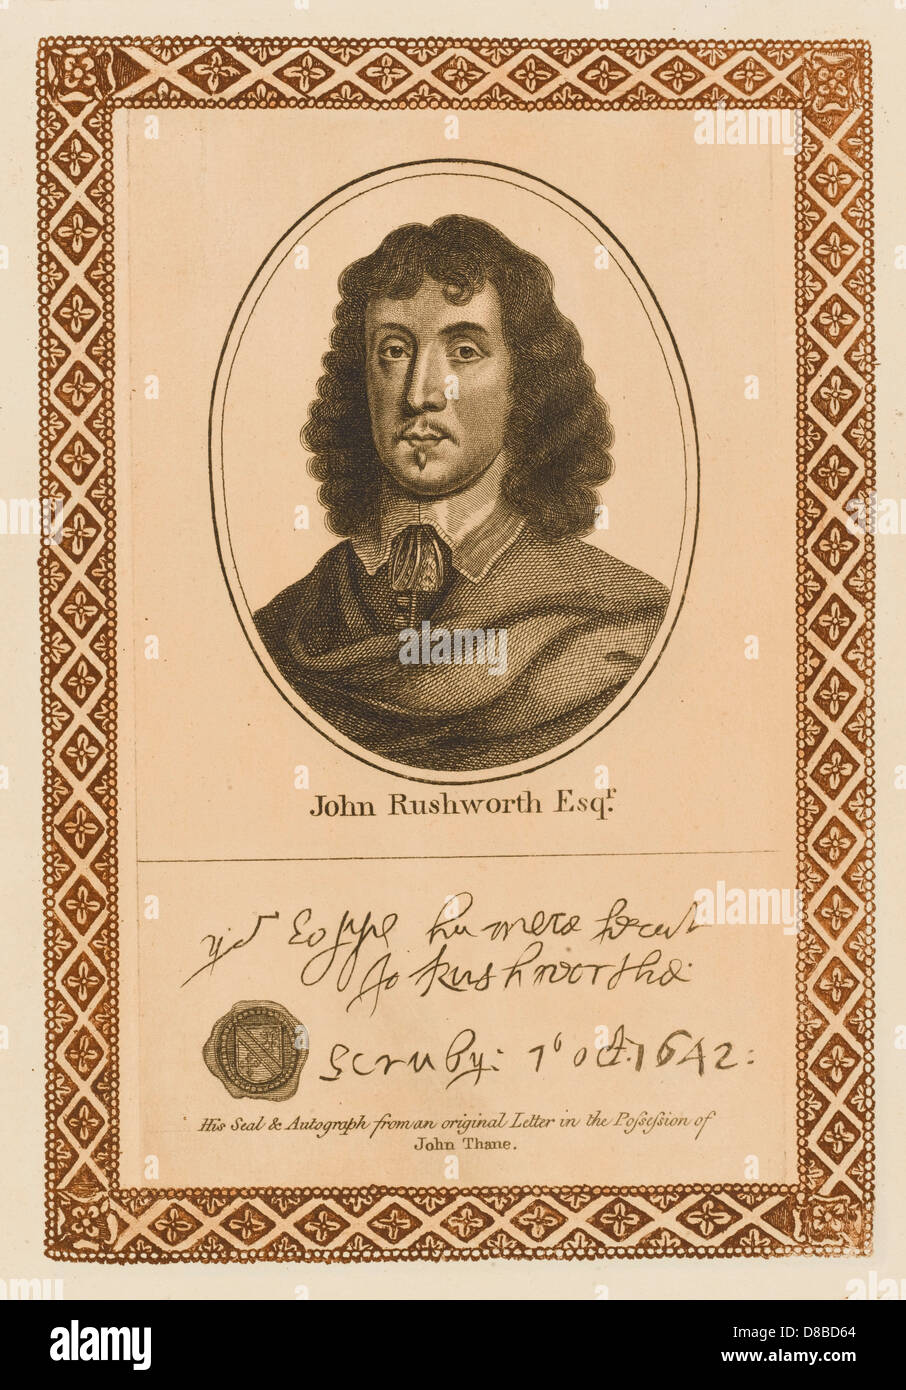 John Rushworth Esqr.
yor
humble servt
Jo Rushworthe:
Scruby: 1o oct. 1642:
His Seal & Autograph from an original Letter in the Poſseſsion of
John Thane.
alamy
Image ID: D8BD64
www.alamy.com